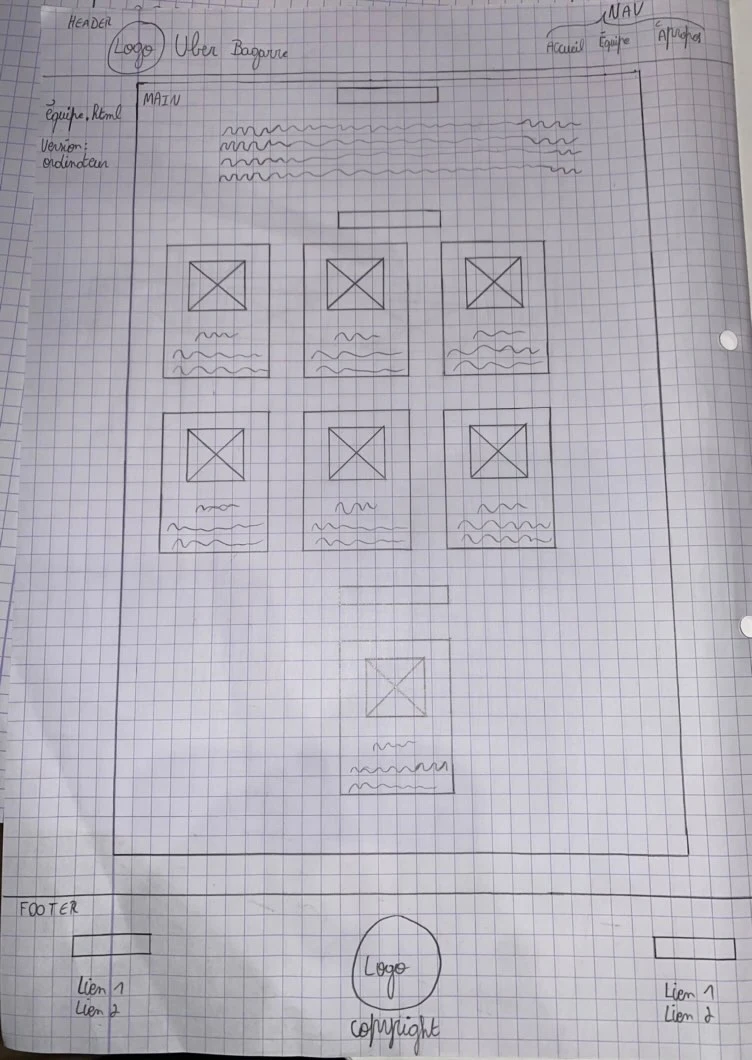 HEADER
NAV
Logo Uber Bagarre
Accueil Équipe À propos
équipe.html
Version:
ordinateur
MAIN
FOOTER
Lien 1
Lien 2
Logo
copyright
Lien 1
Lien 2